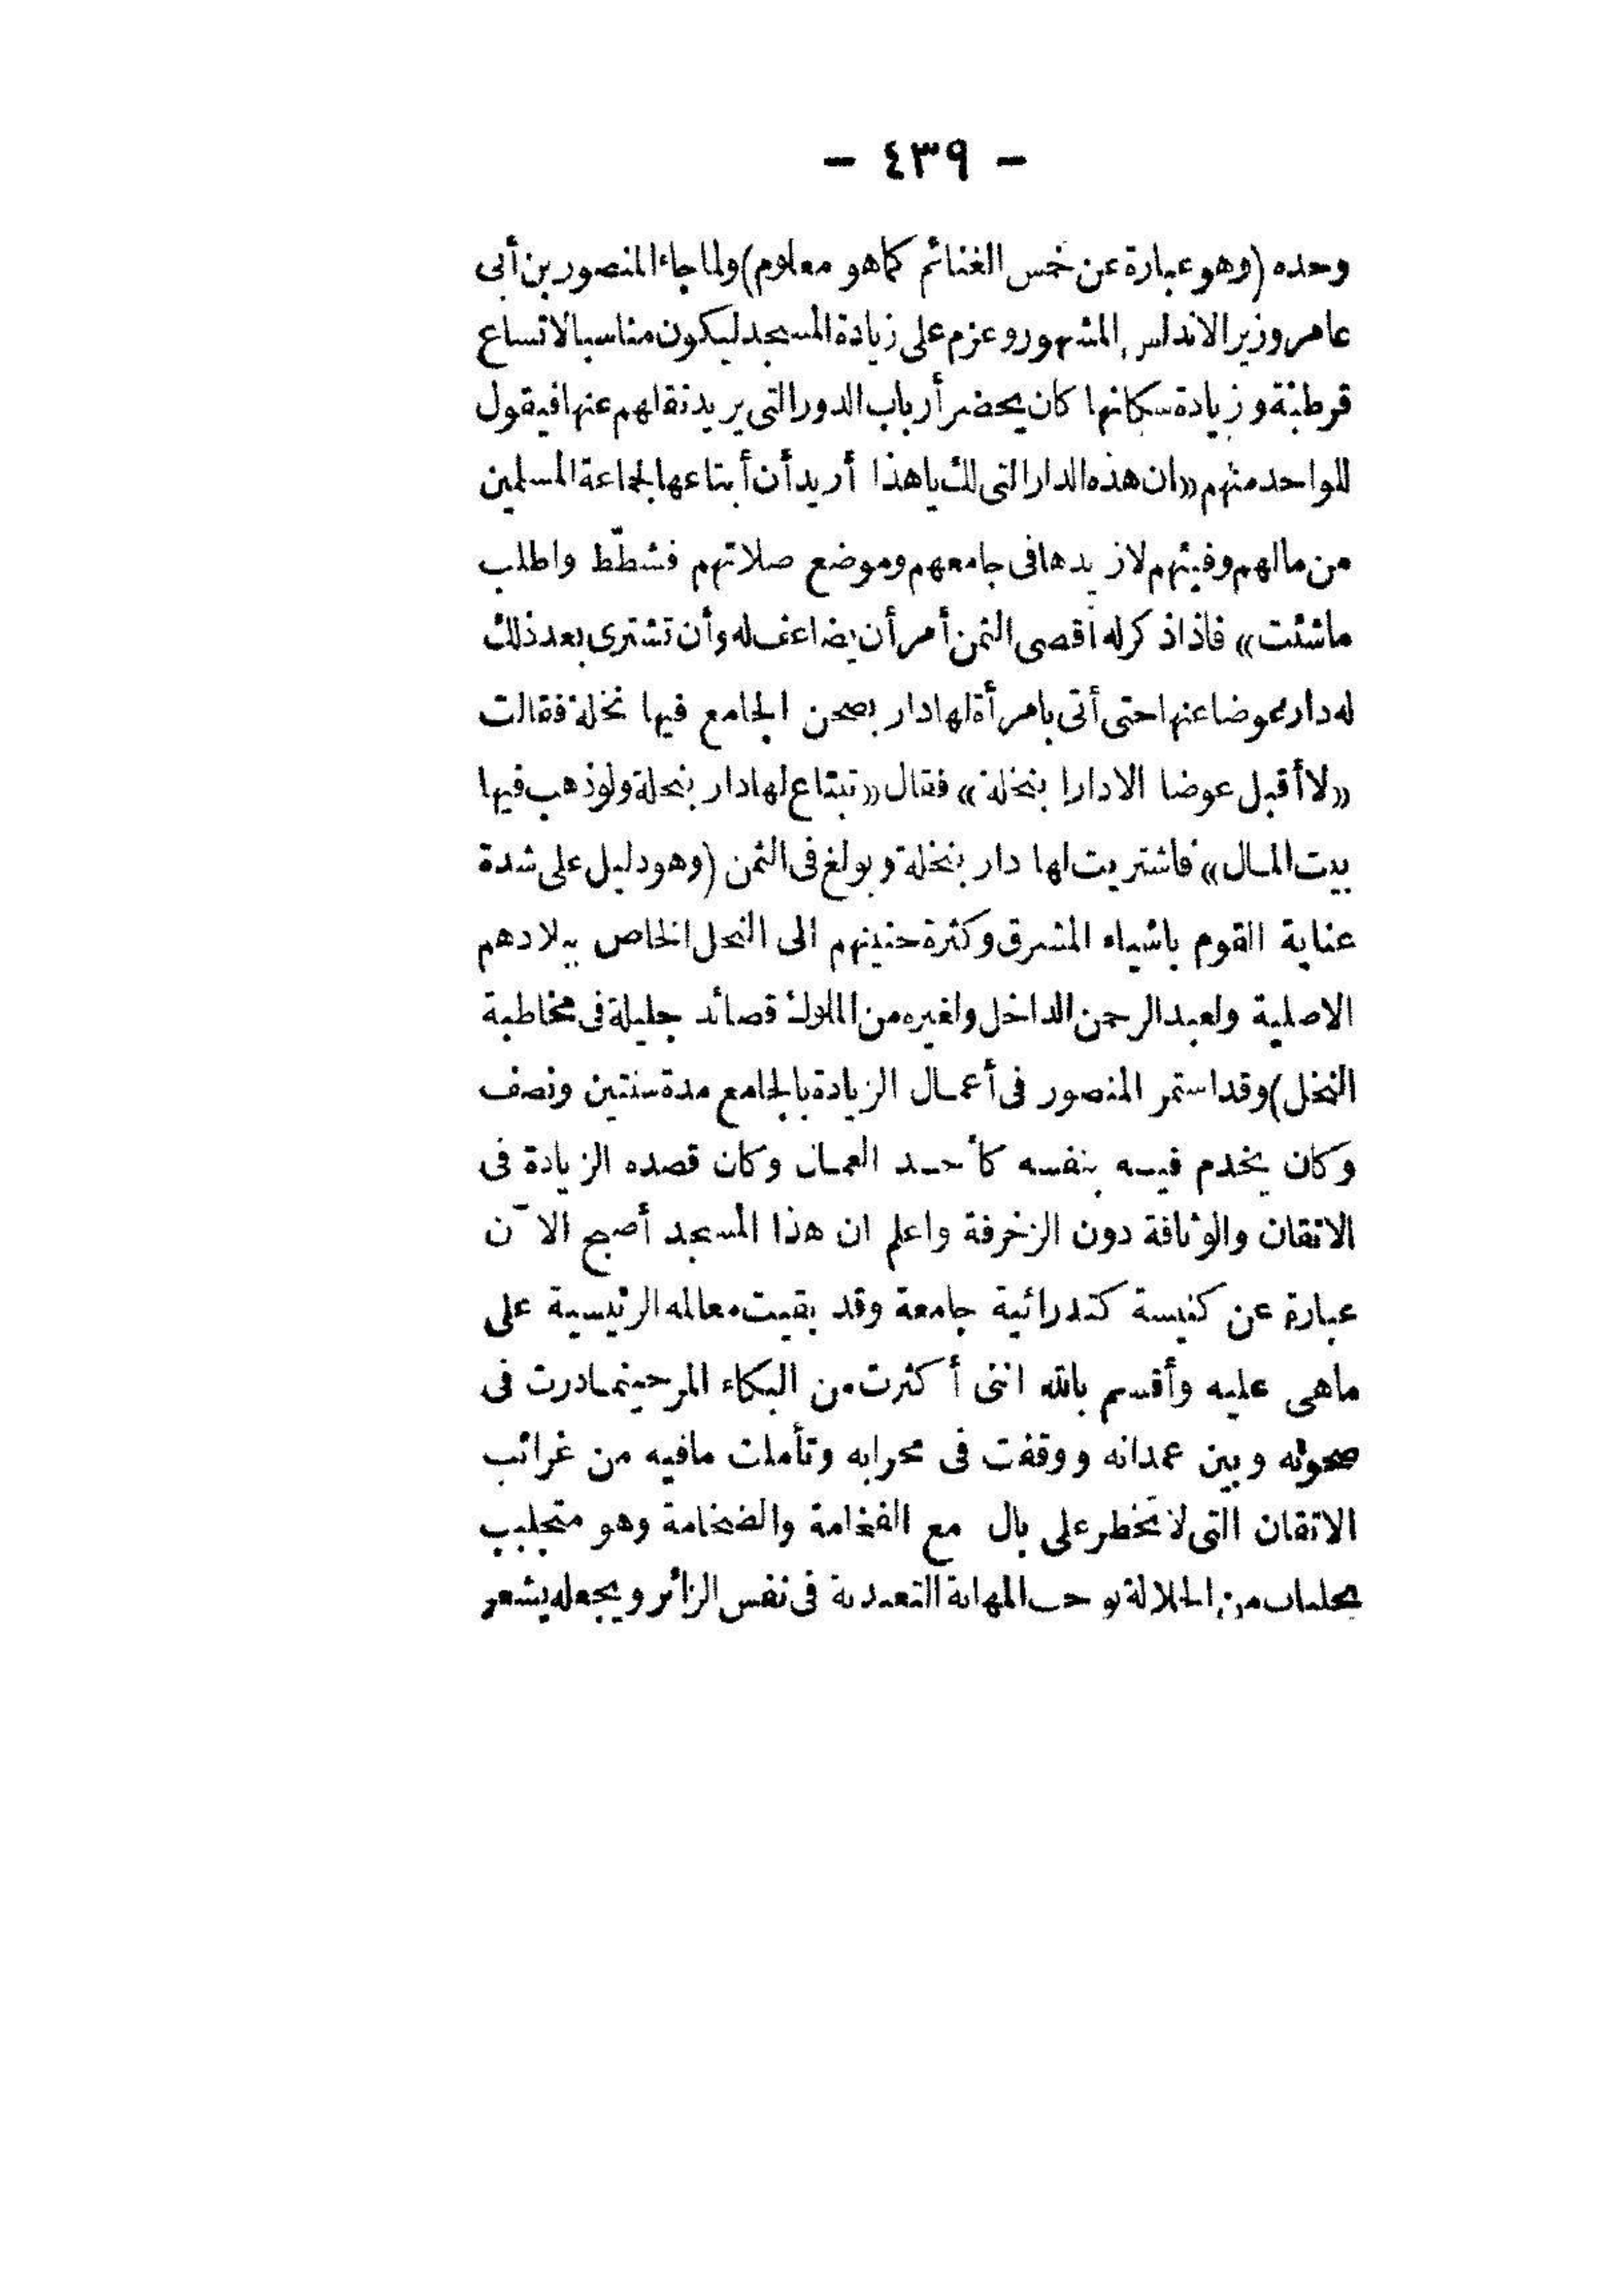 - ٤٣٩ -
وحده (وهو عبارة عن خمس الغنائم كما هو معلوم) ولما جاء المنصور بن أبى
عامر وزير الاندلس المشهور وعزم على زيادة المسجد ليكون مناسبا لاتساع
قرطبة وزيادة سكانها كان يحضر أرباب الدور التى يريد نقلهم عنها فيقول
للواحد منهم «ان هذه الدار التى لك يا هذا أريد أن أبتاعها لجماعة المسلمين
من مالهم وفيئهم لازيدها فى جامعهم وموضع صلاتهم فشطّط واطلب
ماشئت» فاذا ذكر له أقصى الثمن أمر أن يضاعف له وأن تشترى بعد ذلك
له دار عوضا عنها حتى أتى بامرأة لها دار بصحن الجامع فيها نخلة فقالت
«لا أقبل عوضا الا دارا بنخلة» فقال «تبتاع لها دار بنخلة ولو ذهب فيها
بيت المال» فاشتريت لها دار بنخلة وبولغ فى الثمن (وهو دليل على شدة
عناية القوم باشياء المشرق وكثرة حنينهم الى النخل الخاص ببلادهم
الاصلية ولعبد الرحمن الداخل ولغيره من الملوك قصائد جليلة فى مخاطبة
النخل) وقد استمر المنصور فى أعمال الزيادة بالجامع مدة سنتين ونصف
وكان يخدم فيه بنفسه كأحد العمال وكان قصده الزيادة فى
الاتقان والوثافة دون الزخرفة واعلم ان هذا المسجد أصبح الآن
عبارة عن كنيسة كتدرائية جامعة وقد بقيت معالمه الرئيسية على
ماهى عليه وأقسم بالله اننى أكثرت من البكاء المر حينما درت فى
صحونه وبين عمدانه ووقفت فى محرابه وتأملت مافيه من غرائب
الاتقان التى لا تخطر على بال مع الفخامة والضخامة وهو متجلبب
بجلباب من الجلالة يوجب المهابة التعبدية فى نفس الزائر ويجعله يشعر